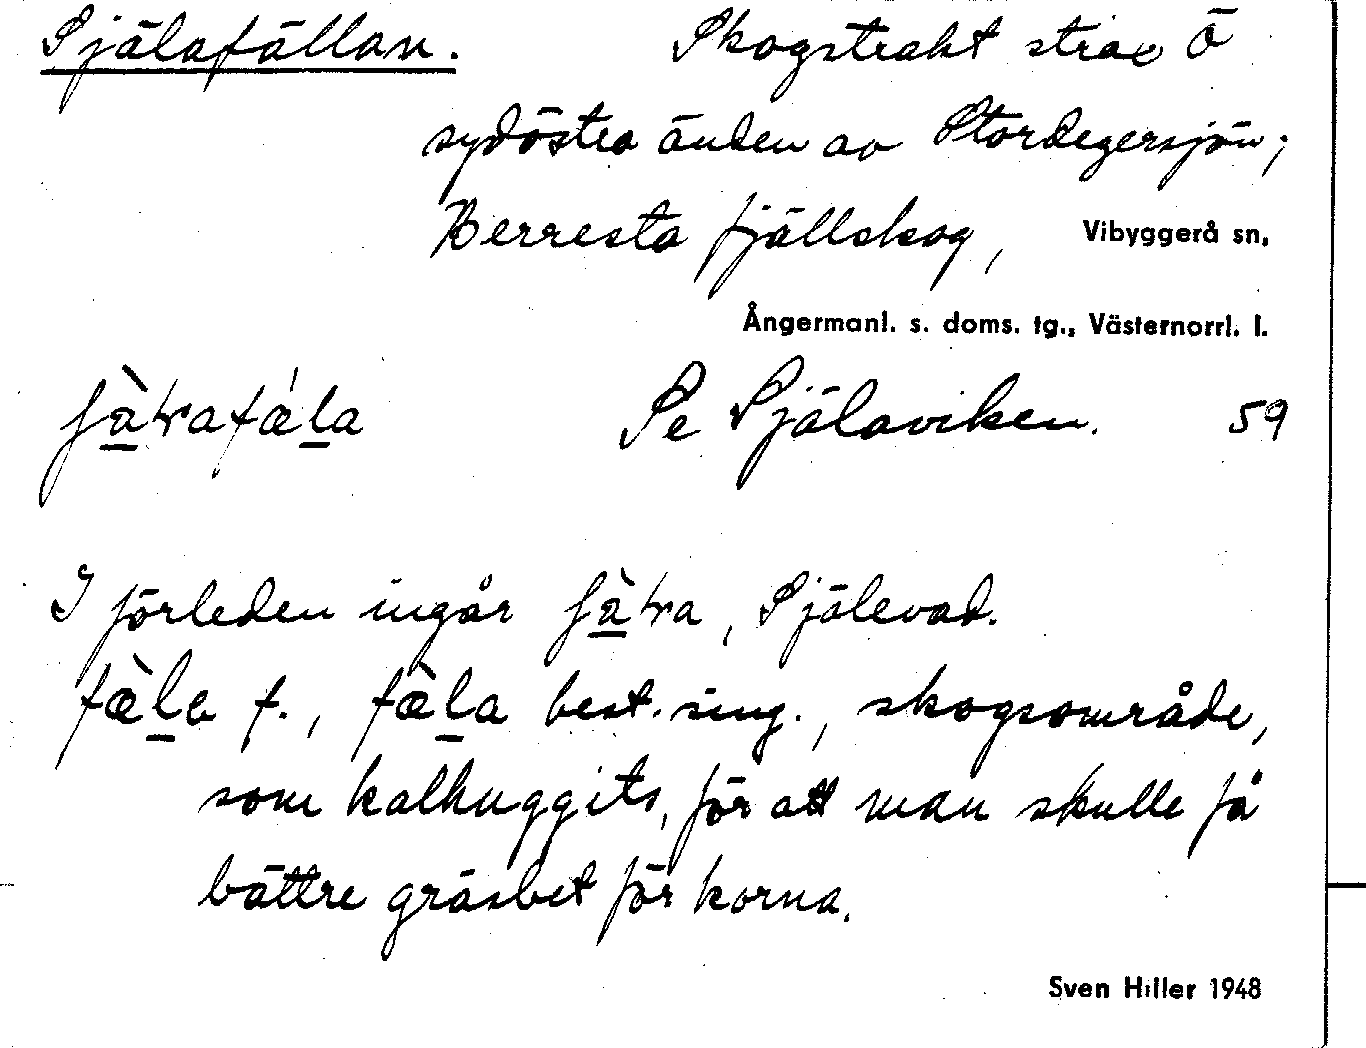 Själafällan. Skogstrakt strax Ö
sydöstra änden av Stordegersjön;
Berresta fjällskog, Vibyggerå sn,
Ångermanl. s. doms. tg., Västernorrl. l.
Se Själaviken. 59
I förleden ingår , Själevad.
f., best. sing., skogsområde,
som kalhuggits, för att man skulle få
bättre gräsbet för korna.
Sven Hiller 1948